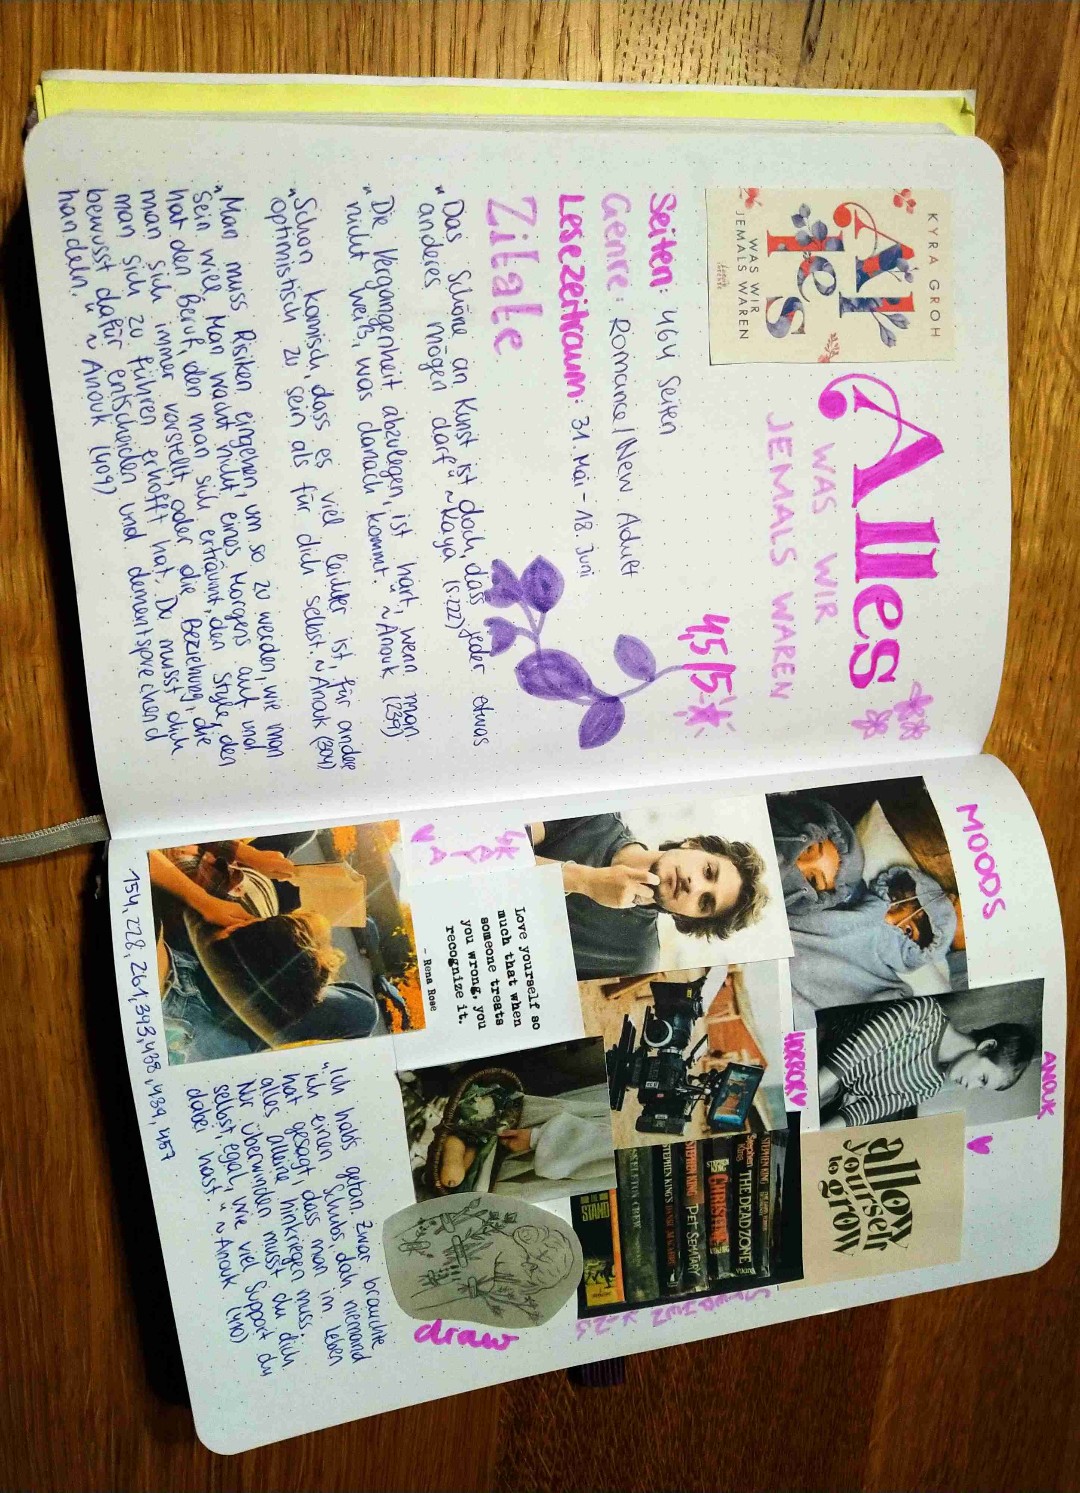 KYRA GROH
Alles
WAS WIR
JEMALS WAREN
Alles
WAS WIR
JEMALS WAREN
4,5/5
Seiten: 464 Seiten
Genre: Romance/New Adult
Lesezeitraum: 31. Mai - 18. Juni
Zitate
"Das Schöne an Kunst ist doch, dass jeder etwas
anderes mögen darf" ~Kaya (S.222)
"Die Vergangenheit abzulegen, ist hart, wenn man
nicht weiß, was danach kommt." ~Anouk (239)
"Schon komisch, dass es viel leichter ist, für andere
optimistisch zu sein als für dich selbst. ~Anouk (304)
"Man muss Risiken eingehen, um so zu werden, wie man
sein will. Man wacht nicht eines Morgens auf und
hat den Beruf, den man sich erträumt, den Style, den
man sich immer vorstellt oder die Beziehung, die
man sich zu führen erhofft hat. Du musst dich
bewusst dafür entscheiden und dementsprechend
handeln." ~ Anouk (409)
MOODS
ANOUK
HORROR
allow
yourself
to
grow
STEPHEN KING
Stephen King THE DEAD ZONE
CHRISTINE
STEPHEN KING PET SEMATARY
STEPHEN KING'S DANSE MACABRE
SKELETON CREW
THE STAND
Love yourself so
much that when
someone treats
you wrong, you
recognize it.
- Rena Rose
draw
"Ich habs getan. Zwar brauchte
ich einen Schubs, doch niemand
hat gesagt, dass man im Leben
alles alleine hinkriegen muss.
Nur überwinden musst du dich
selbst, egal, wie viel Support du
dabei hast." ~Anouk (410)
154, 228, 261, 393, 438, 439, 457